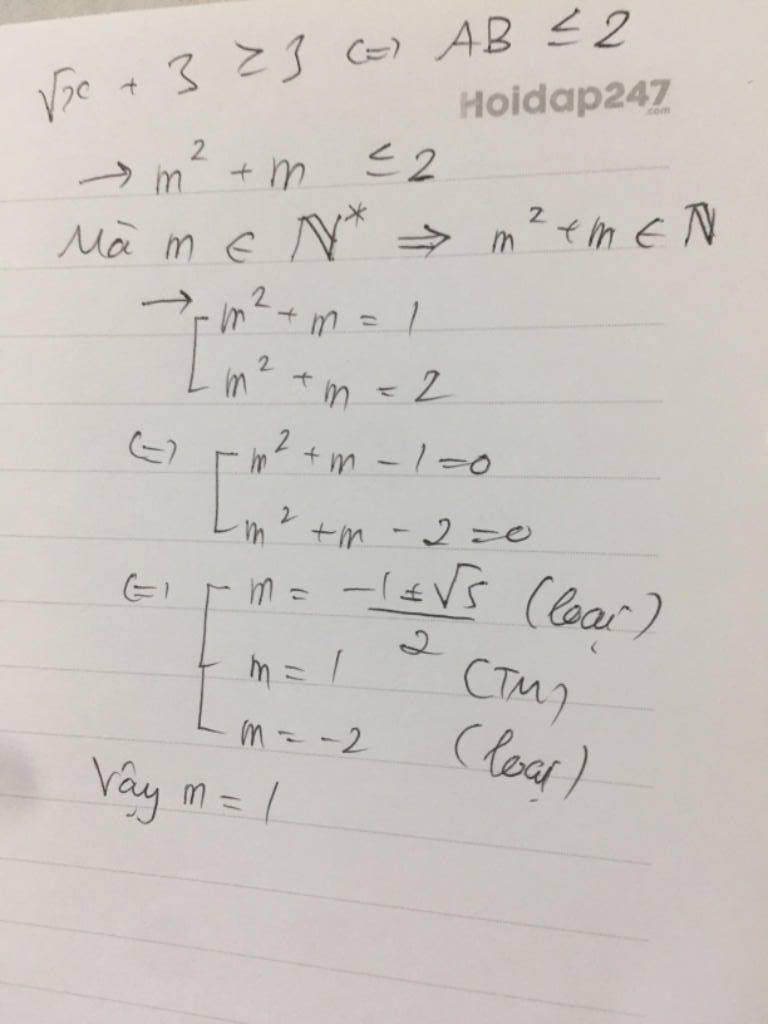 √x + 3 ≥ 3 (=) AB ≤ 2
Hoidap247
.com
→ m² + m ≤ 2
Mà m ∈ ℕ* ⇒ m² + m ∈ ℕ
→ [ m² + m = 1
m² + m = 2
(=) [ m² + m - 1 = 0
m² + m - 2 = 0
(=) [ m = (-1 ± √5)/2 (loại)
m = 1 (TM)
m = -2 (loại)
Vậy m = 1